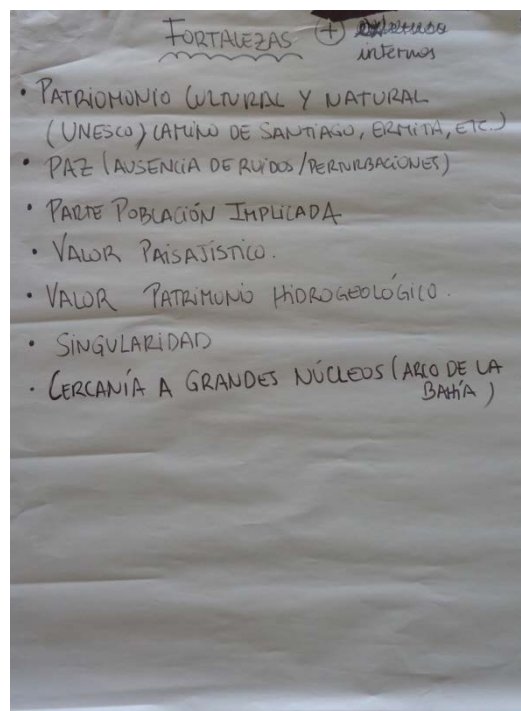 FORTALEZAS (+)
internos
• PATRIOMONIO CULTURAL Y NATURAL
(UNESCO) CAMINO DE SANTIAGO, ERMITA, ETC.)
• PAZ (AUSENCIA DE RUIDOS/PERTURBACIONES)
• PARTE POBLACIÓN IMPLICADA
• VALOR PAISAJÍSTICO.
• VALOR PATRIMONIO HIDROGEOLÓGICO.
• SINGULARIDAD
• CERCANÍA A GRANDES NÚCLEOS (ARCO DE LA
BAHÍA)